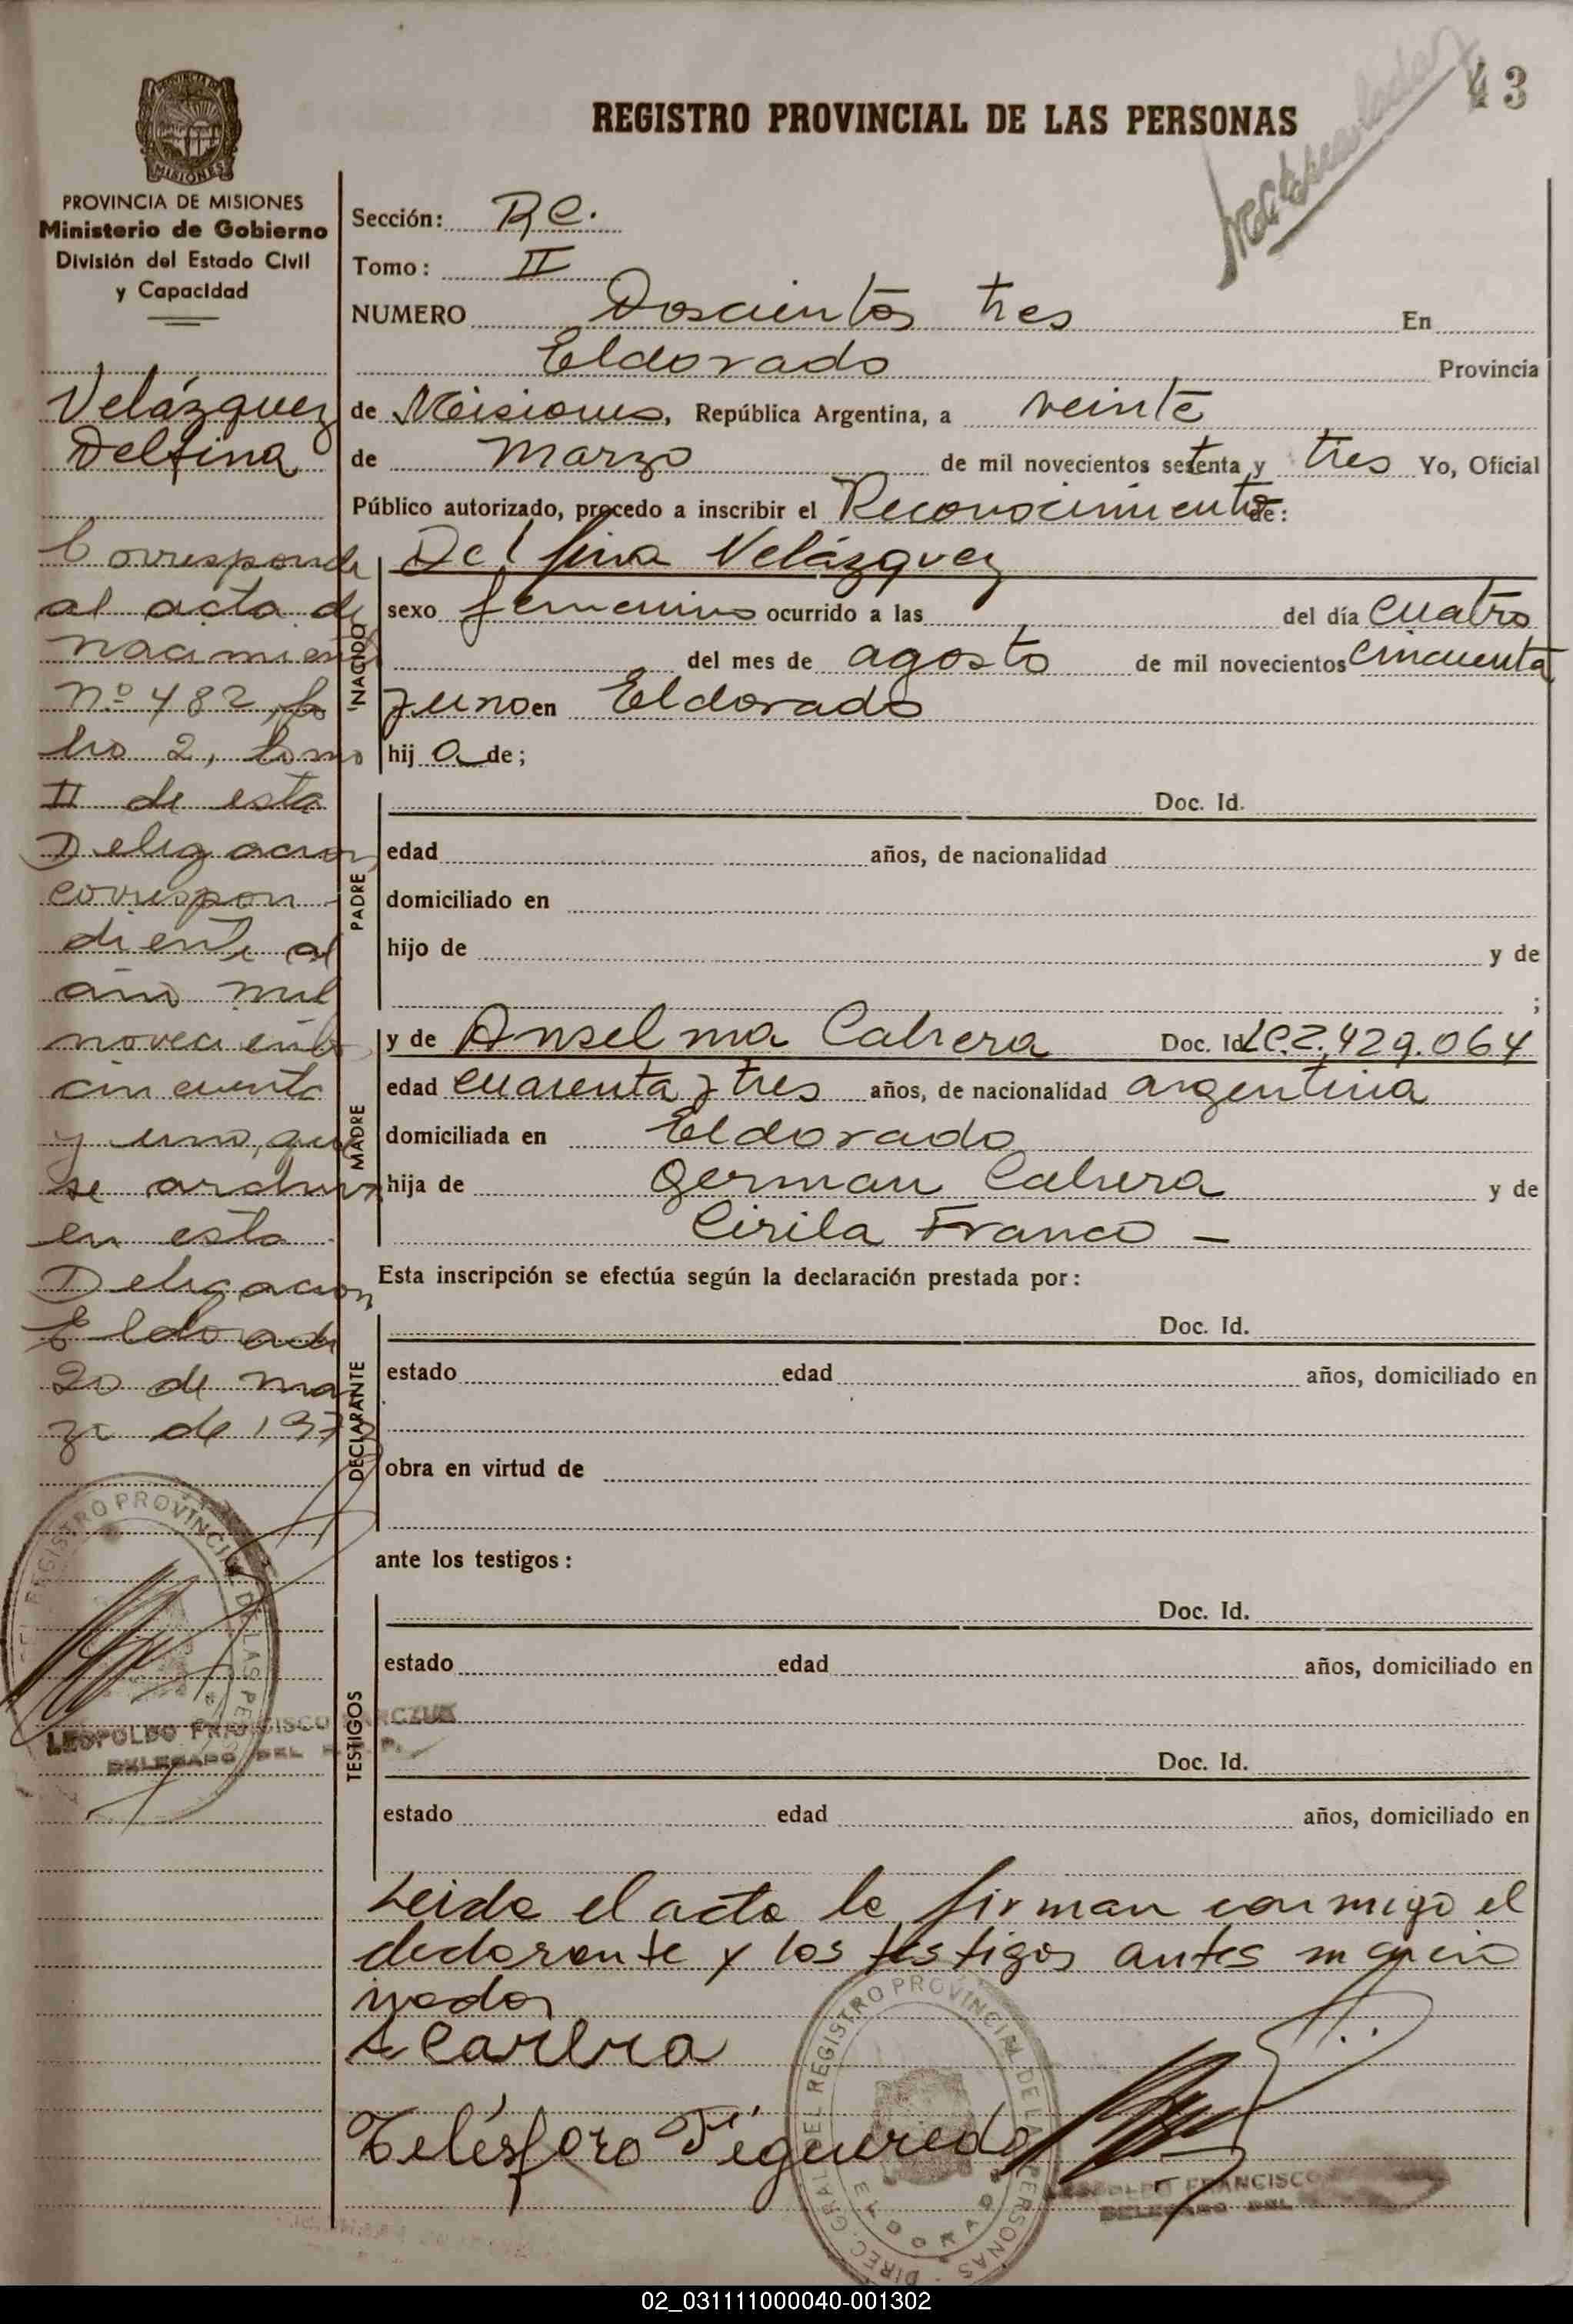 43
Matriculados
REGISTRO PROVINCIAL DE LAS PERSONAS
MISIONES
PROVINCIA DE MISIONES
Ministerio de Gobierno
División del Estado Civil
y Capacidad
Velázquez
Delfina
Corresponde
al acta de
nacimiento
Nº 482, fo
lio 2, tomo
II de esta
Delegacion
correspon
diente al
año mil
novecientos
cincuenta
y uno, que
se archiva
en esta
Delegacion
Eldorado
20 de mar
zo de 1973
LEOPOLDO FRANCISCO
DELEGADO DEL R. P. P.
Sección: R.C.
Tomo: II
NUMERO Doscientos tres En
Eldorado Provincia
de Misiones, República Argentina, a veinte
de Marzo de mil novecientos setenta y tres Yo, Oficial
Público autorizado, procedo a inscribir el Reconocimiento de:
NACIDO
Delfina Velázquez
sexo femenino ocurrido a las del día cuatro
del mes de agosto de mil novecientos cincuenta
y uno en Eldorado
hij a de;
PADRE
Doc. Id.
edad años, de nacionalidad
domiciliado en
hijo de y de
;
MADRE
y de Anselma Cabrera Doc. Id. LC. 2.429.064
edad cuarenta y tres años, de nacionalidad argentina
domiciliada en Eldorado
hija de German Cabrera y de
Cirila Franco —
Esta inscripción se efectúa según la declaración prestada por:
DECLARANTE
Doc. Id.
estado edad años, domiciliado en
obra en virtud de
ante los testigos:
TESTIGOS
Doc. Id.
estado edad años, domiciliado en
Doc. Id.
estado edad años, domiciliado en
Leida el acta la firman conmigo el
declarante y los testigos antes mencio
nados
Telésforo Figueredo
DIREC. GRAL. DEL REGISTRO PROVINCIAL DE LAS PERSONAS
ELDORADO
LEOPOLDO FRANCISCO
DELEGADO DEL
02_031111000040-001302